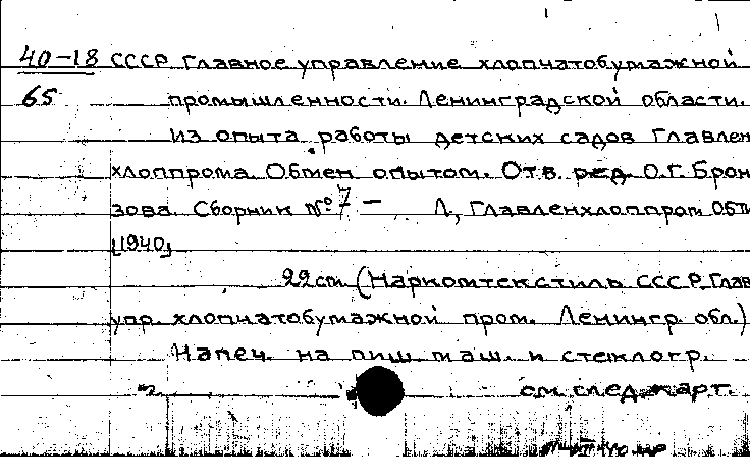 40-18 СССР. Главное управление хлопчатобумажной
65 промышленности. Ленинградской области.
Из опыта работы детских садов Главлен
хлоппрома. Обмен опытом. Отв. ред. О.Г. Брон
зова. Сборник № 7 - Л., Главленхлоппром
[1940]
22 см. (Наркомтекстиль СССР. Глав
упр. хлопчатобумажной пром. Ленингр. обл.)
Напеч. на пиш. маш. и стеклогр.
см. след. карт.